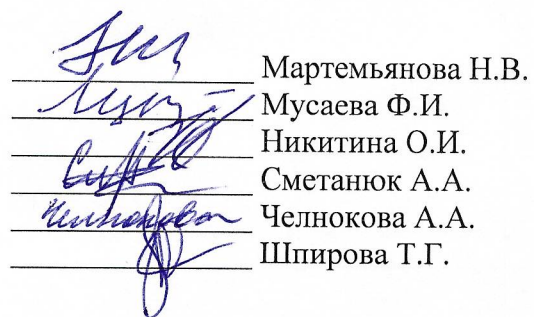 Мартемьянова Н.В.
Мусаева Ф.И.
Никитина О.И.
Сметанюк А.А.
Челнокова Челнокова А.А.
Шпирова Т.Г.